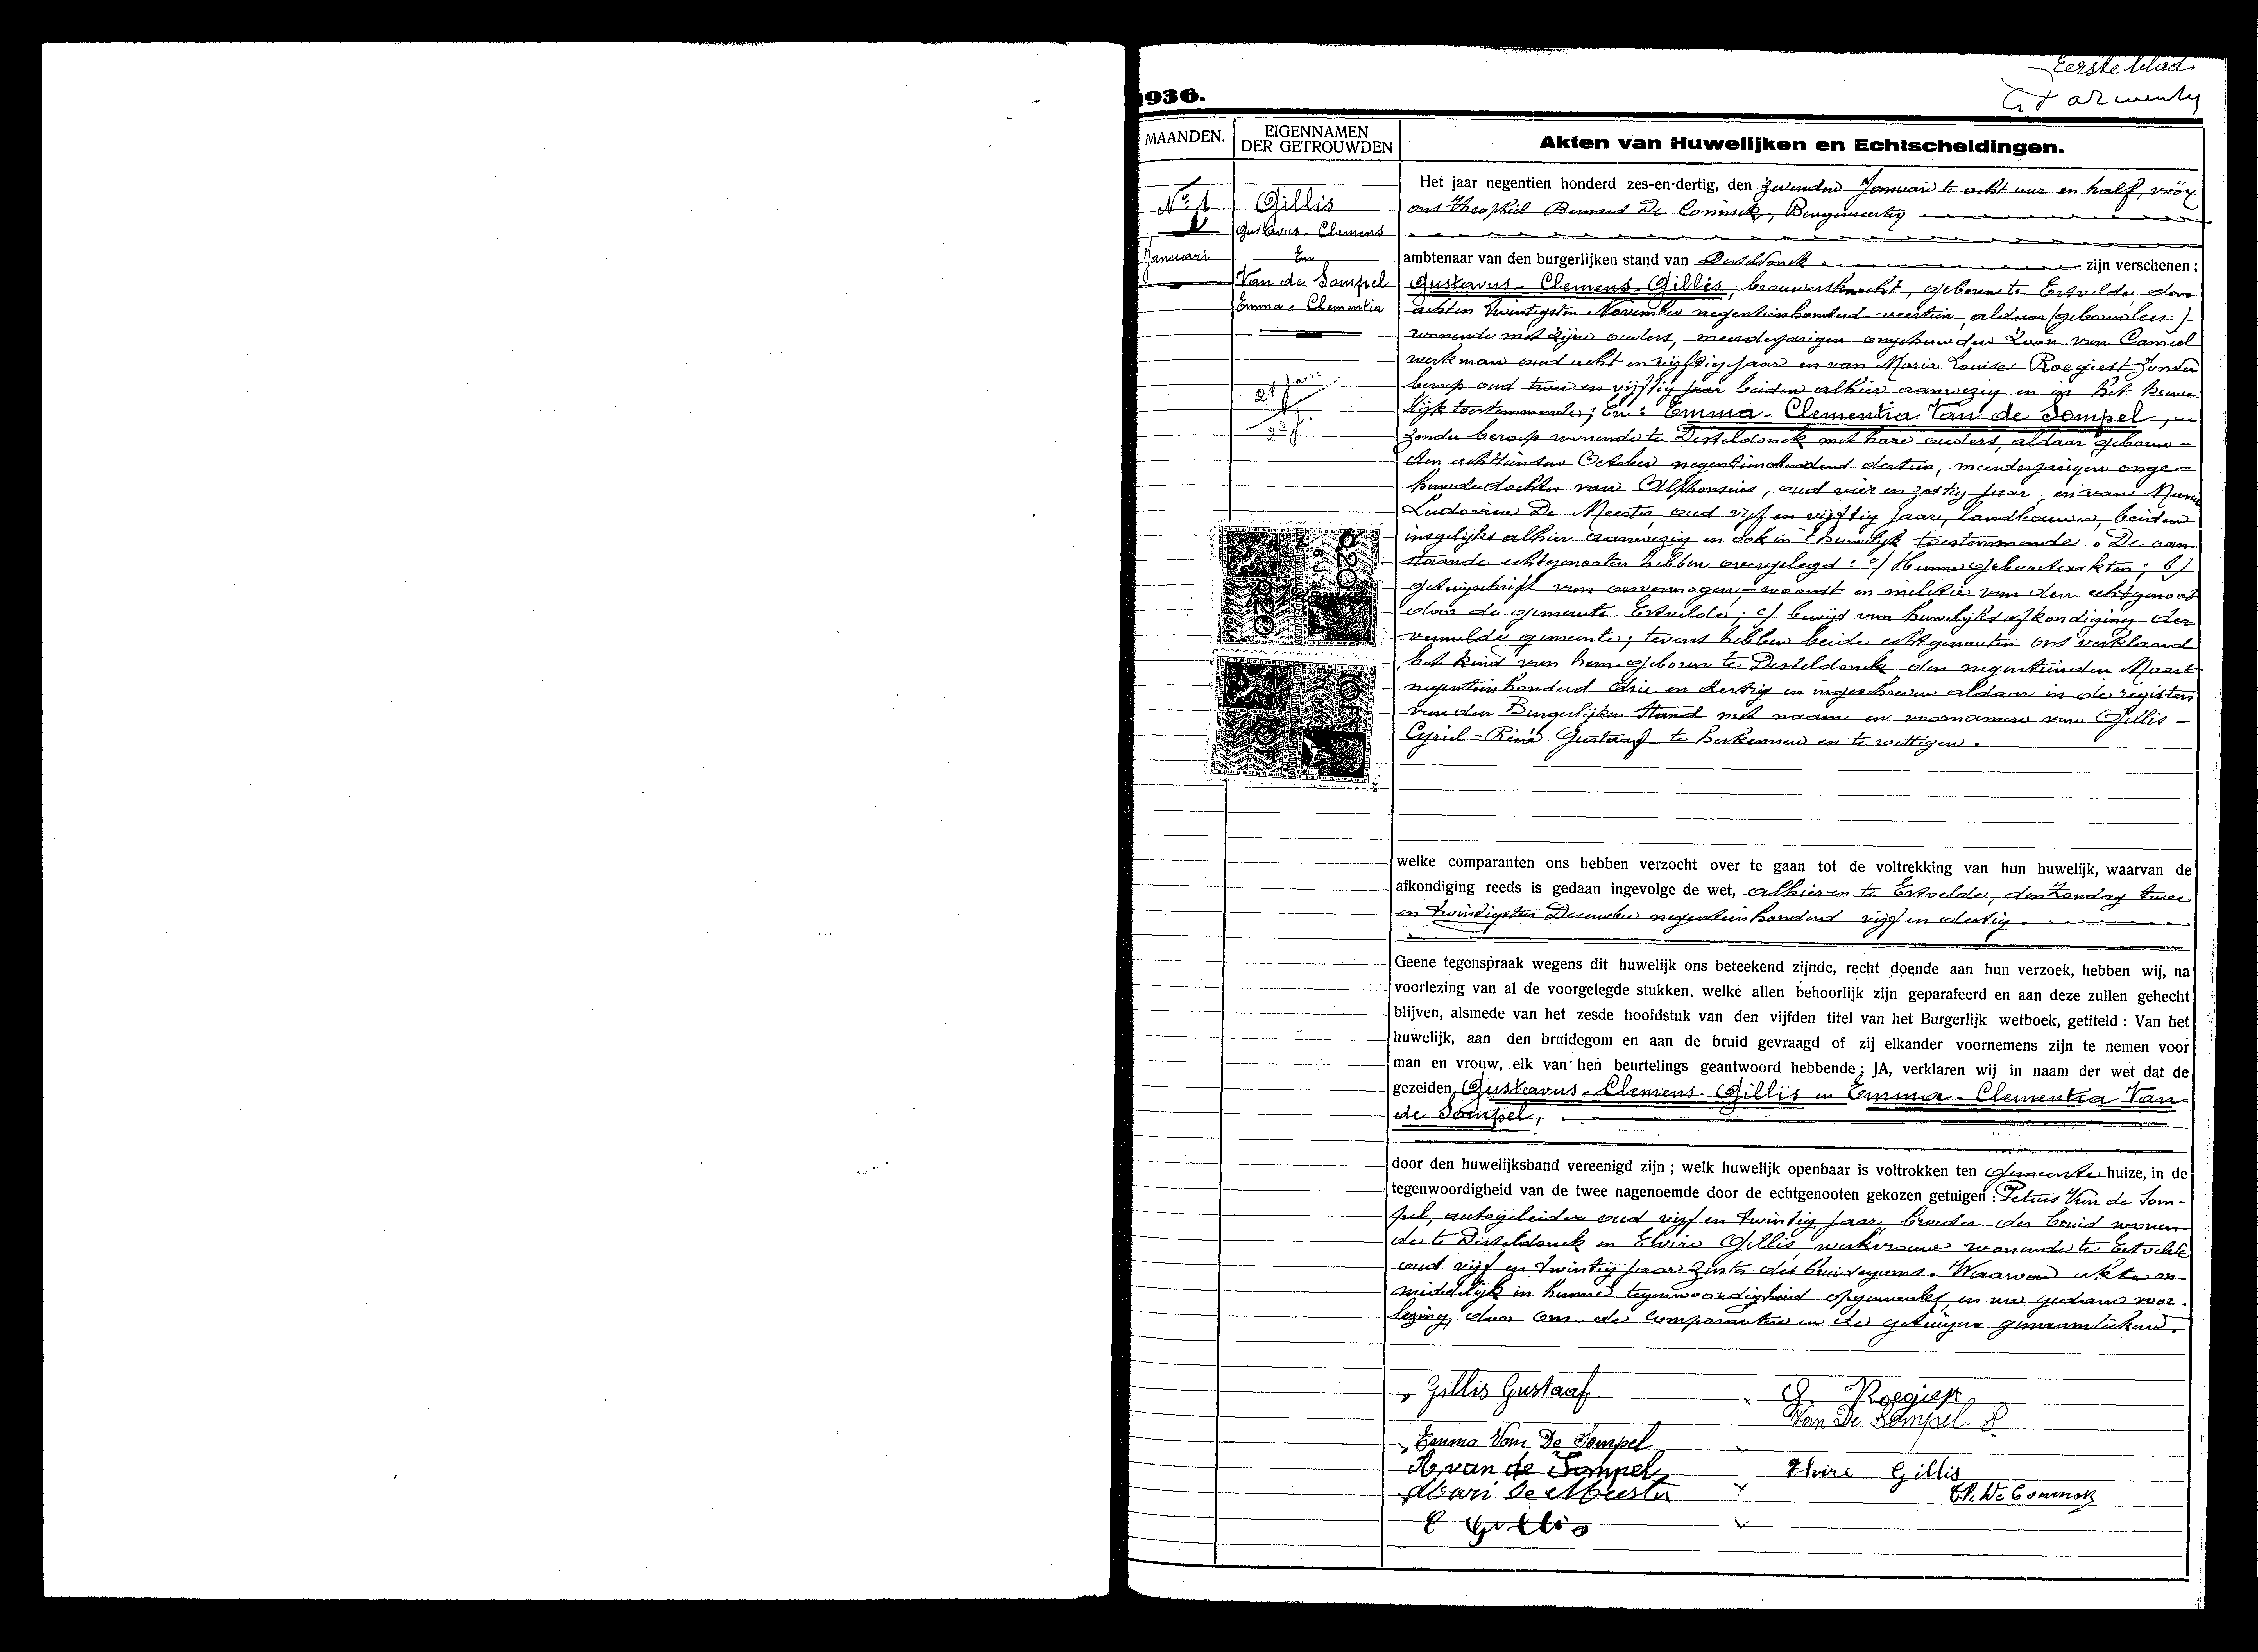 Eerste blad.
1936.
MAANDEN.
EIGENNAMEN
DER GETROUWDEN
Akten van Huwelijken en Echtscheidingen.
No 1
Januari
Gillis
Gustavus - Clemens
En
Van de Sompel
Emma - Clementia
21 jaar
22 j.
Het jaar negentien honderd zes-en-dertig, den zevenden Januari te acht uur en half, vóór
ons Theophiel Bernard De Coninck, Burgemeester
ambtenaar van den burgerlijken stand van Desteldonck zijn verschenen :
Gustavus - Clemens - Gillis, brouwersknecht, geboren te Ertvelde, den
acht en twintigsten November negentienhonderd veertien, aldaar (geboren lees:)
wonende met zijne ouders, meerderjarigen ongehuwden Zoon van Camiel
werkman oud acht en vijftig jaar en van Maria Louise Roegiest zonder
beroep oud twee en vijftig jaar beiden alhier aanwezig en in het huwe-
lijk toestemmende ; En : Emma - Clementia Van de Sompel,
zonder beroep wonende te Desteldonck met hare ouders, aldaar geboren
den achttienden October negentienhonderd dertien, meerderjarigen onge-
huwde dochter van Alphonsius, oud vier en zestig jaar, en van Maria
Ludovica De Meester, oud vijf en vijftig jaar, landbouwers, beiden
insgelijks alhier aanwezig en ook in 't huwelijk toestemmende. De aan-
staande echtgenooten hebben overgelegd : a) Hunne geboorteakten ; b)
getuigschrift van onvermogen - woonst en militie van den echtgenoot
door de gemeente Ertvelde ; c) bewijs van huwelijksafkondiging der
vermelde gemeente ; tevens hebben beide echtgenooten ons verklaard
het kind van hem geboren te Desteldonck den negentienden Maart
negentienhonderd drie en dertig en ingeschreven aldaar in de registers
van den Burgerlijken Stand met naam en voornamen van Gillis -
Cyriel - René Gustaaf te herkennen en te wettigen.
welke comparanten ons hebben verzocht over te gaan tot de voltrekking van hun huwelijk, waarvan de
afkondiging reeds is gedaan ingevolge de wet, alhier en te Ertvelde, den Zondag twee
en twintigsten December negentienhonderd vijf en dertig.
Geene tegenspraak wegens dit huwelijk ons beteekend zijnde, recht doende aan hun verzoek, hebben wij, na
voorlezing van al de voorgelegde stukken, welke allen behoorlijk zijn geparafeerd en aan deze zullen gehecht
blijven, alsmede van het zesde hoofdstuk van den vijfden titel van het Burgerlijk wetboek, getiteld : Van het
huwelijk, aan den bruidegom en aan de bruid gevraagd of zij elkander voornemens zijn te nemen voor
man en vrouw, elk van hen beurtelings geantwoord hebbende ; JA, verklaren wij in naam der wet dat de
gezeiden Gustavus - Clemens - Gillis en Emma - Clementia Van
de Sompel,
door den huwelijksband vereenigd zijn ; welk huwelijk openbaar is voltrokken ten gemeente huize, in de
tegenwoordigheid van de twee nagenoemde door de echtgenooten gekozen getuigen : Petrus Van de Som-
pel, autogeleider oud vijf en twintig jaar, broeder der bruid wonen-
de te Desteldonck en Elvire Gillis werkvrouw wonende te Ertvelde
oud vijf en twintig jaar Zuster des bruidegoms. Waarvan akte on-
middelijk in hunne tegenwoordigheid opgemaakt, en na gedane voor-
lezing, door ons de comparanten en de getuigen genaamtekend.
Gillis Gustaaf
Roegiest
Van De Sompel. P
Emma Van De Sompel
A van de Sompel
Elvire Gillis
Marie De Meester
Th. De Coninck
C Gillis